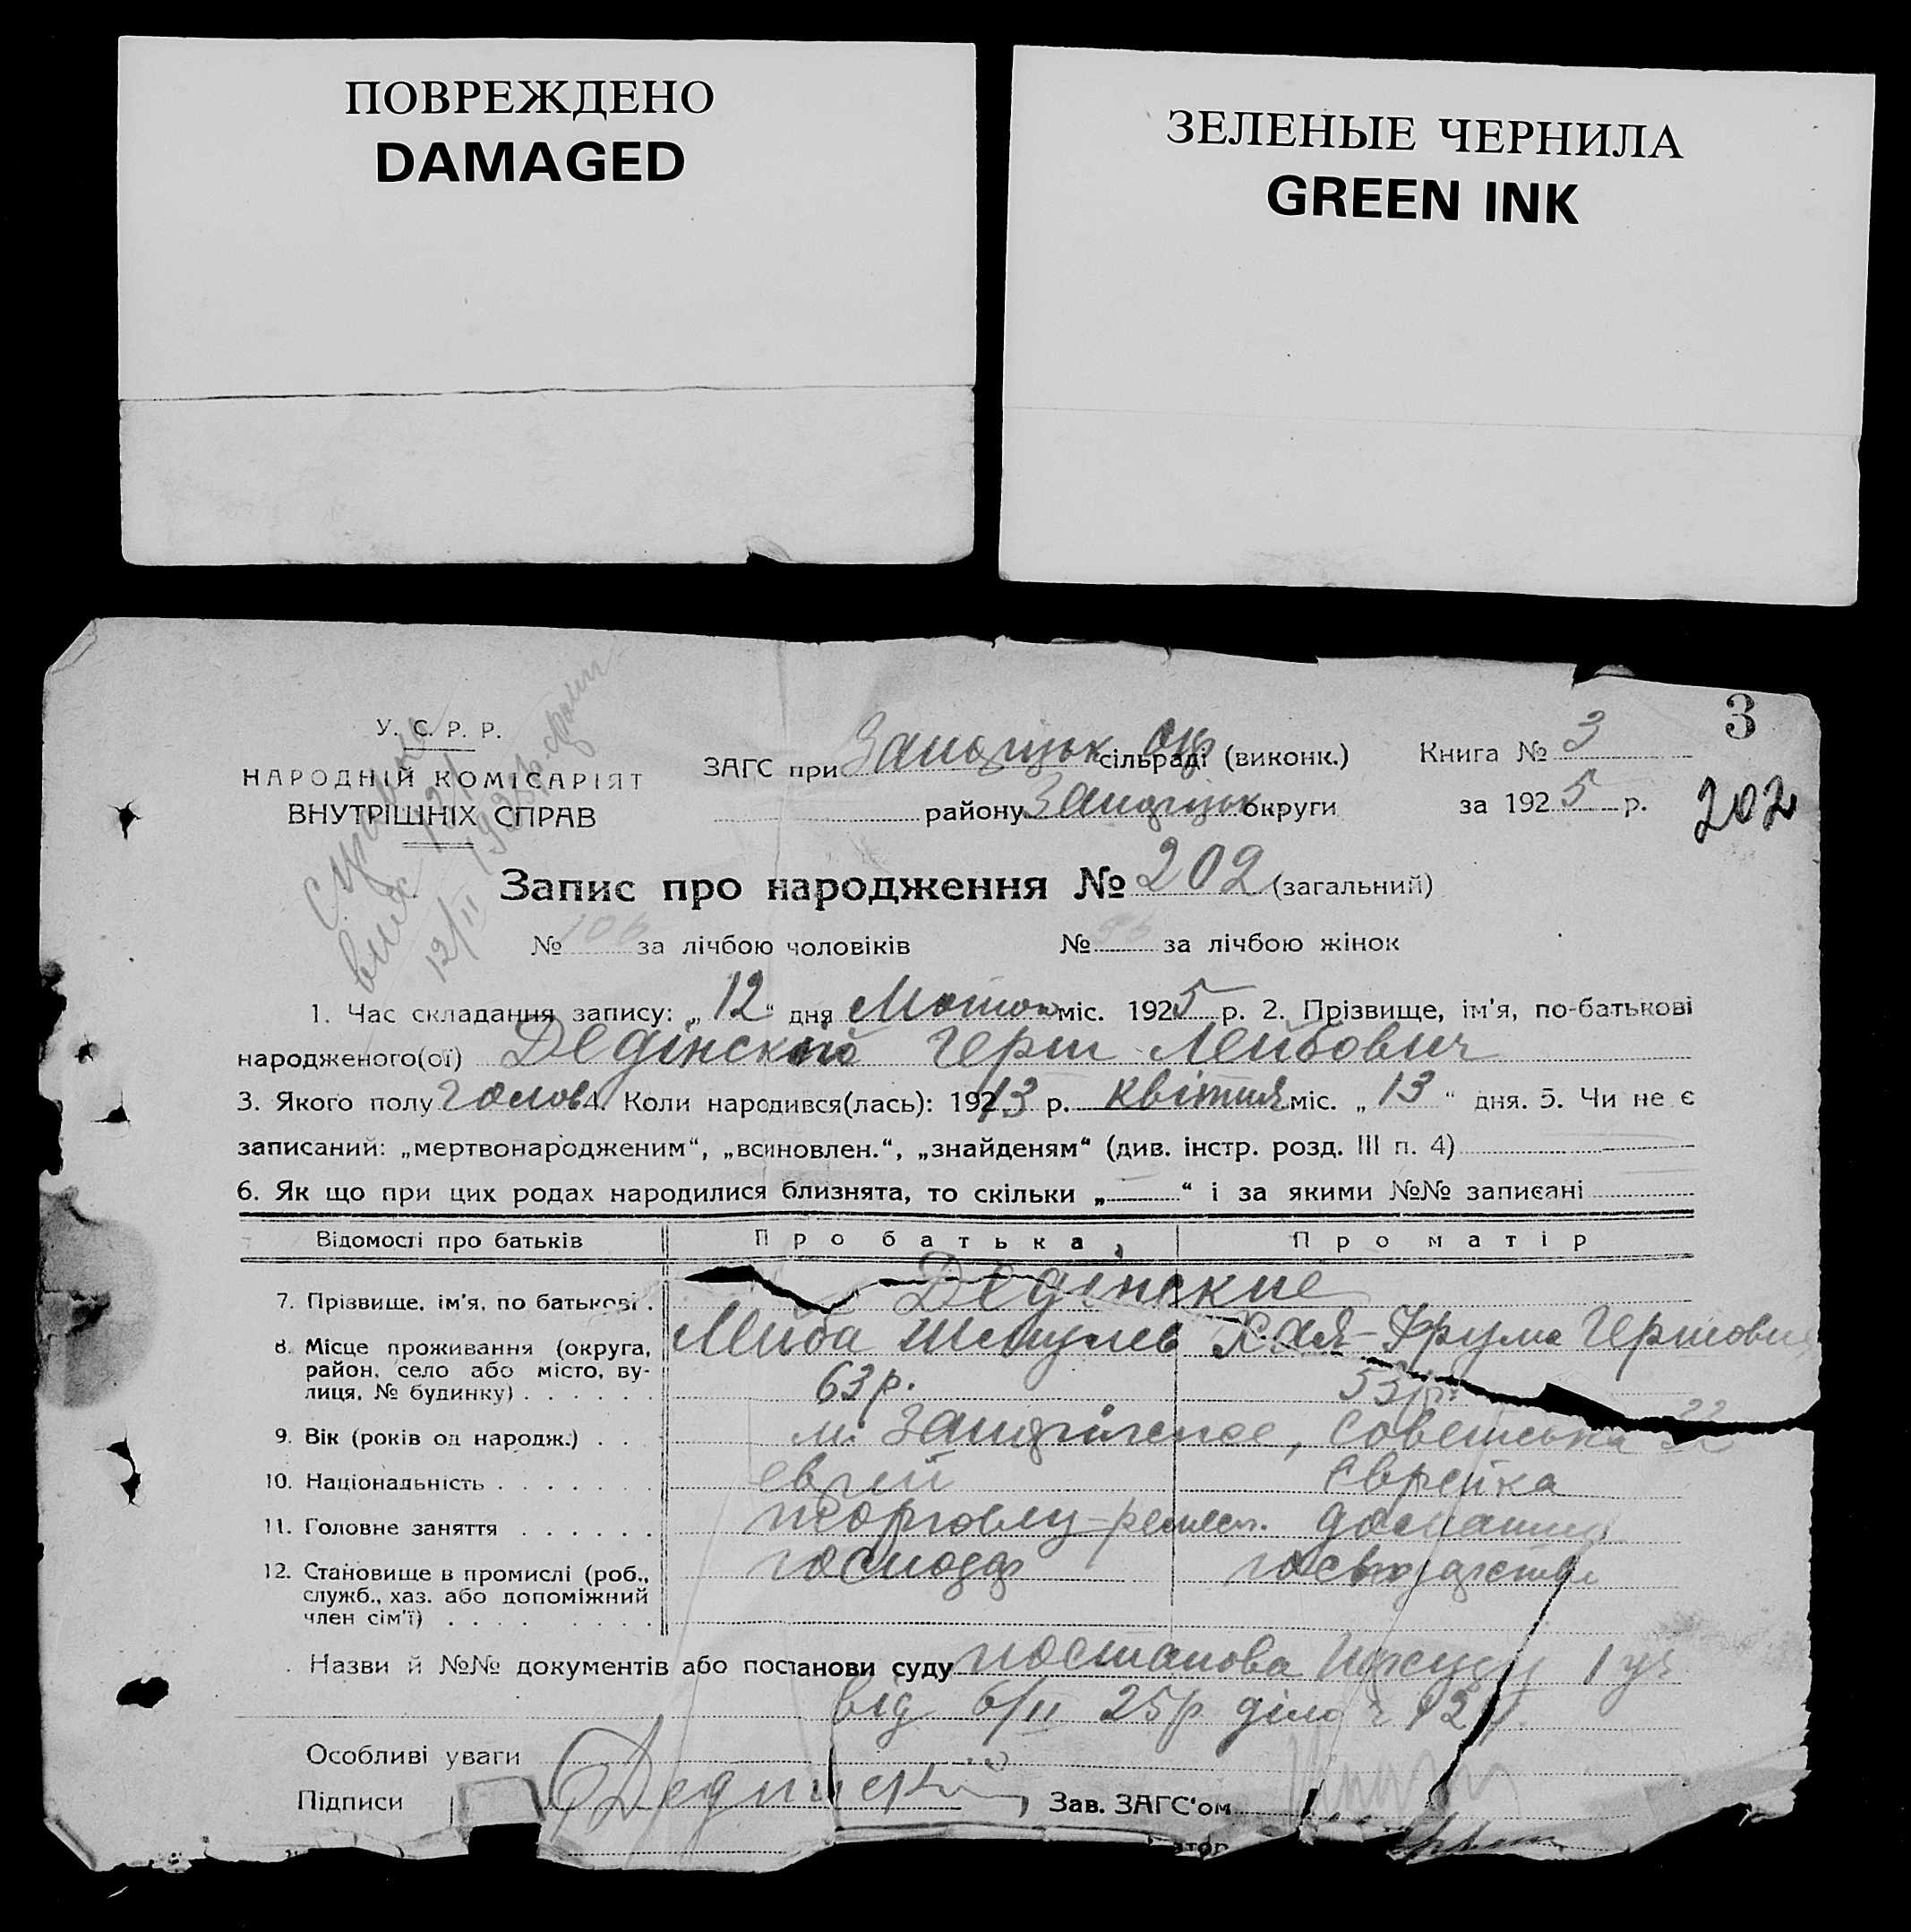 ПОВРЕЖДЕНО
DAMAGED
ЗЕЛЕНЫЕ ЧЕРНИЛА
GREEN INK
3
У. С. Р. Р.
НАРОДНІЙ КОМІСАРІЯТ
ВНУТРІШНІХ СПРАВ
ЗАГС при сільраді (виконк.) Книга № 3
району округи за 1925 р.
202
Запис про народження № 202 (загальний)
№ 106 за лічбою чоловіків № 96 за лічбою жінок
12/II
1. Час складання запису: „12“ дня міс. 1925 р. 2. Прізвище, ім'я, по-батькові
народженого(ої) Дедінский Герш Лейбович
3. Якого полу 4. Коли народився(лась): 19213 р. квітня міс. „13“ дня. 5. Чи не є
записаний: „мертвонародженим“, „всиновлен.“, „знайденям“ (див. інстр. розд. III п. 4)
6. Як що при цих родах народилися близнята, то скільки „ “ і за якими №№ записані
Відомості про батьків Про батька Про матір
7. Прізвище, ім'я, по батькові. Дедінские
Лейба Хая-Фрума
8. Місце проживання (округа,
район, село або місто, ву-
лиця, № будинку) 63 р. 53 р.
9. Вік (років од народж.) м.
10. Національність еврей Єврейка
11. Головне заняття
12. Становище в промислі (роб.,
служб., хаз. або допоміжний
член сім'ї)
Назви й №№ документів або постанови суду постанова
від 6/II 25р діло
Особливі уваги
Підписи Зав. ЗАГС'ом